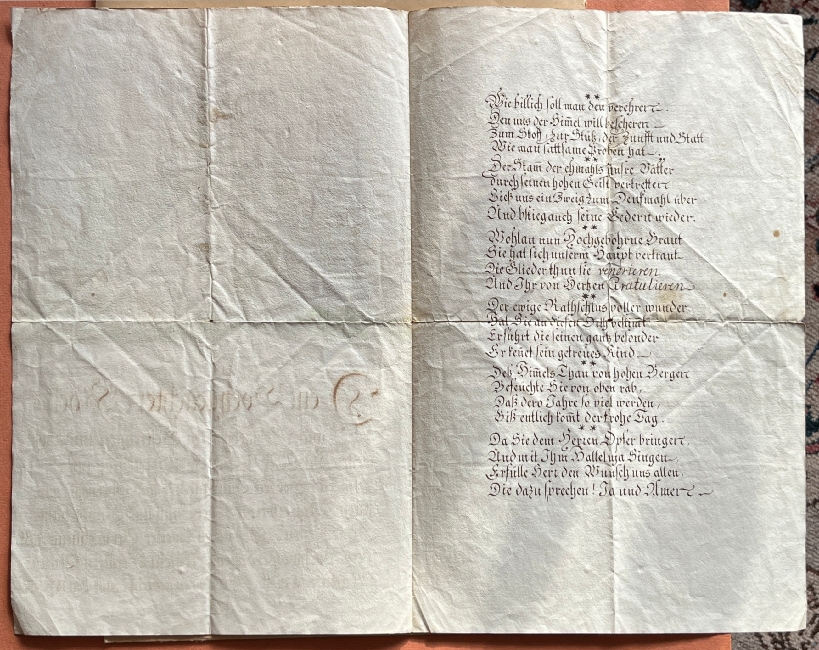 Wie billich soll man den verehren.
Den uns der Him̅el will bescheren
Zum Stoff, zur Stütz, der Zunfft und Statt
Wie man sattsame Proben hat.
Der Stam̅ der ehmahls unsre Vätter
durch seinen hohen Geist vertretten
Ließ uns ein Zweig zum Denkmahl über
Und auch seine Cedern wieder.
Wohlan nun Hochgebohrne Braut
Sie hat sich unserm Haupt vertraut
Die Glieder thun sie venerieren
Und Ihr von Hertzen Gratulieren
Der ewige Rathschlus voller wunder
Hat Sie an diesen
Er führt die seinen gantz besonder
Er ken̅et sein getreues Kind.
Deß Him̅els Thau von hohen Bergen
Befeuchte Sie von oben rab,
Daß dero Jahre so viel werden,
Biß entlich kom̅t der frohe Tag.
Da Sie dem Herren Opfer bringen,
Und mit Ihm Halleluia Singen
Erfülle Herr den Wunsch uns allen
Die dazu sprechen! Ja und Amen